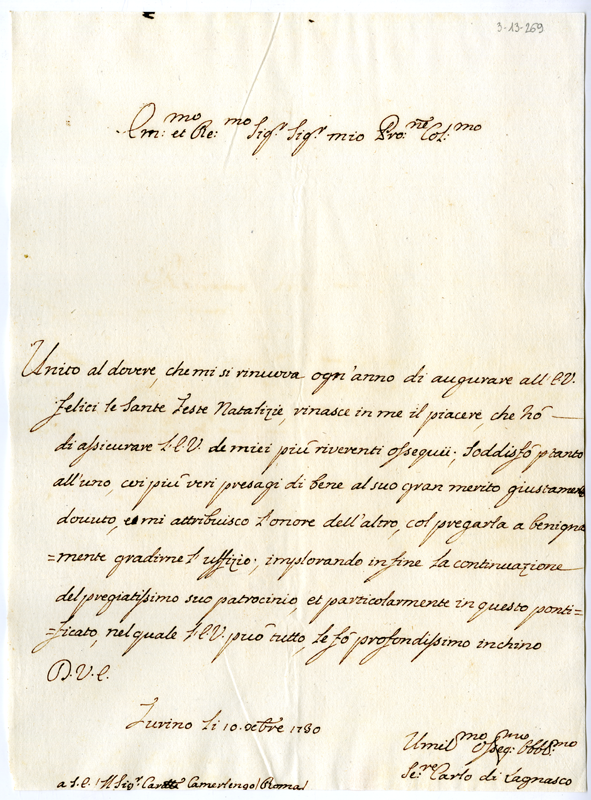 3-13-269
Em:mo et Re:mo Sigr Sigr mio Pro:ne Col:mo
Unito al dovere, che mi si rinuova ogn'anno di augurare all'E.V.
felici le Sante Feste Natalizie, rinasce in me il piacere, che hò
di assicurare l'E.V. de miei più riverenti ossequii; Soddisfò ptanto
all'uno, coi più veri presagi di bene al suo gran merito giustamente
dovuto, e mi attribuisco l'onore dell'altro, col pregarla a benigna
=mente gradirne l'uffizio; implorando in fine la continuazione
del pregiatissimo suo patrocinio, et particolarmente in questo ponti=
=ficato, nel quale l'E.V. può tutto, le fò profondissimo inchino
D.V.E.
Turino li 10. Xbre 1730
Umilmo Osseq:mo Obbl:mo
Se:re Carlo di Lagnasco
a S.E. (Il Sigr Card Camerlengo) Roma)